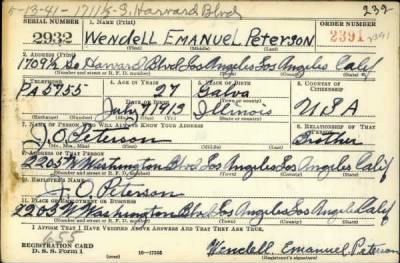 5-13-41 - 1711½ S. Harvard Blvd 232
SERIAL NUMBER 1. NAME (Print) ORDER NUMBER
2932 WENDELL EMANUEL PETERSON 2391
(First) (Middle) (Last)
2. ADDRESS (Print)
1709½ So Harvard Blvd Los Angeles Los Angeles Calif
(Number and street or R. F. D. number) (Town) (County) (State)
3. TELEPHONE 4. AGE IN YEARS 5. PLACE OF BIRTH 6. COUNTRY OF CITIZENSHIP
PA 5955 27 Galva
DATE OF BIRTH (Town or county)
July 9 1913 Illinois USA
(Mo.) (Day) (Yr.) (State or country)
7. NAME OF PERSON WHO WILL ALWAYS KNOW YOUR ADDRESS 8. RELATIONSHIP OF THAT PERSON
J. O. Peterson Brother
(Mr., Mrs., Miss) (First) (Middle) (Last)
9. ADDRESS OF THAT PERSON
2205 W Washington Blvd Los Angeles Los Angeles Calif
(Number and street or R. F. D. number) (Town) (County) (State)
10. EMPLOYER'S NAME
J. O. Peterson
11. PLACE OF EMPLOYMENT OR BUSINESS
2205 W Washington Blvd Los Angeles Los Angeles Calif
(Number and street or R. F. D. number) (Town) (County) (State)
I AFFIRM THAT I HAVE VERIFIED ABOVE ANSWERS AND THAT THEY ARE TRUE.
REGISTRATION CARD
D. S. S. Form 1 16-17105 Wendell Emanuel Peterson
(Registrant's signature)